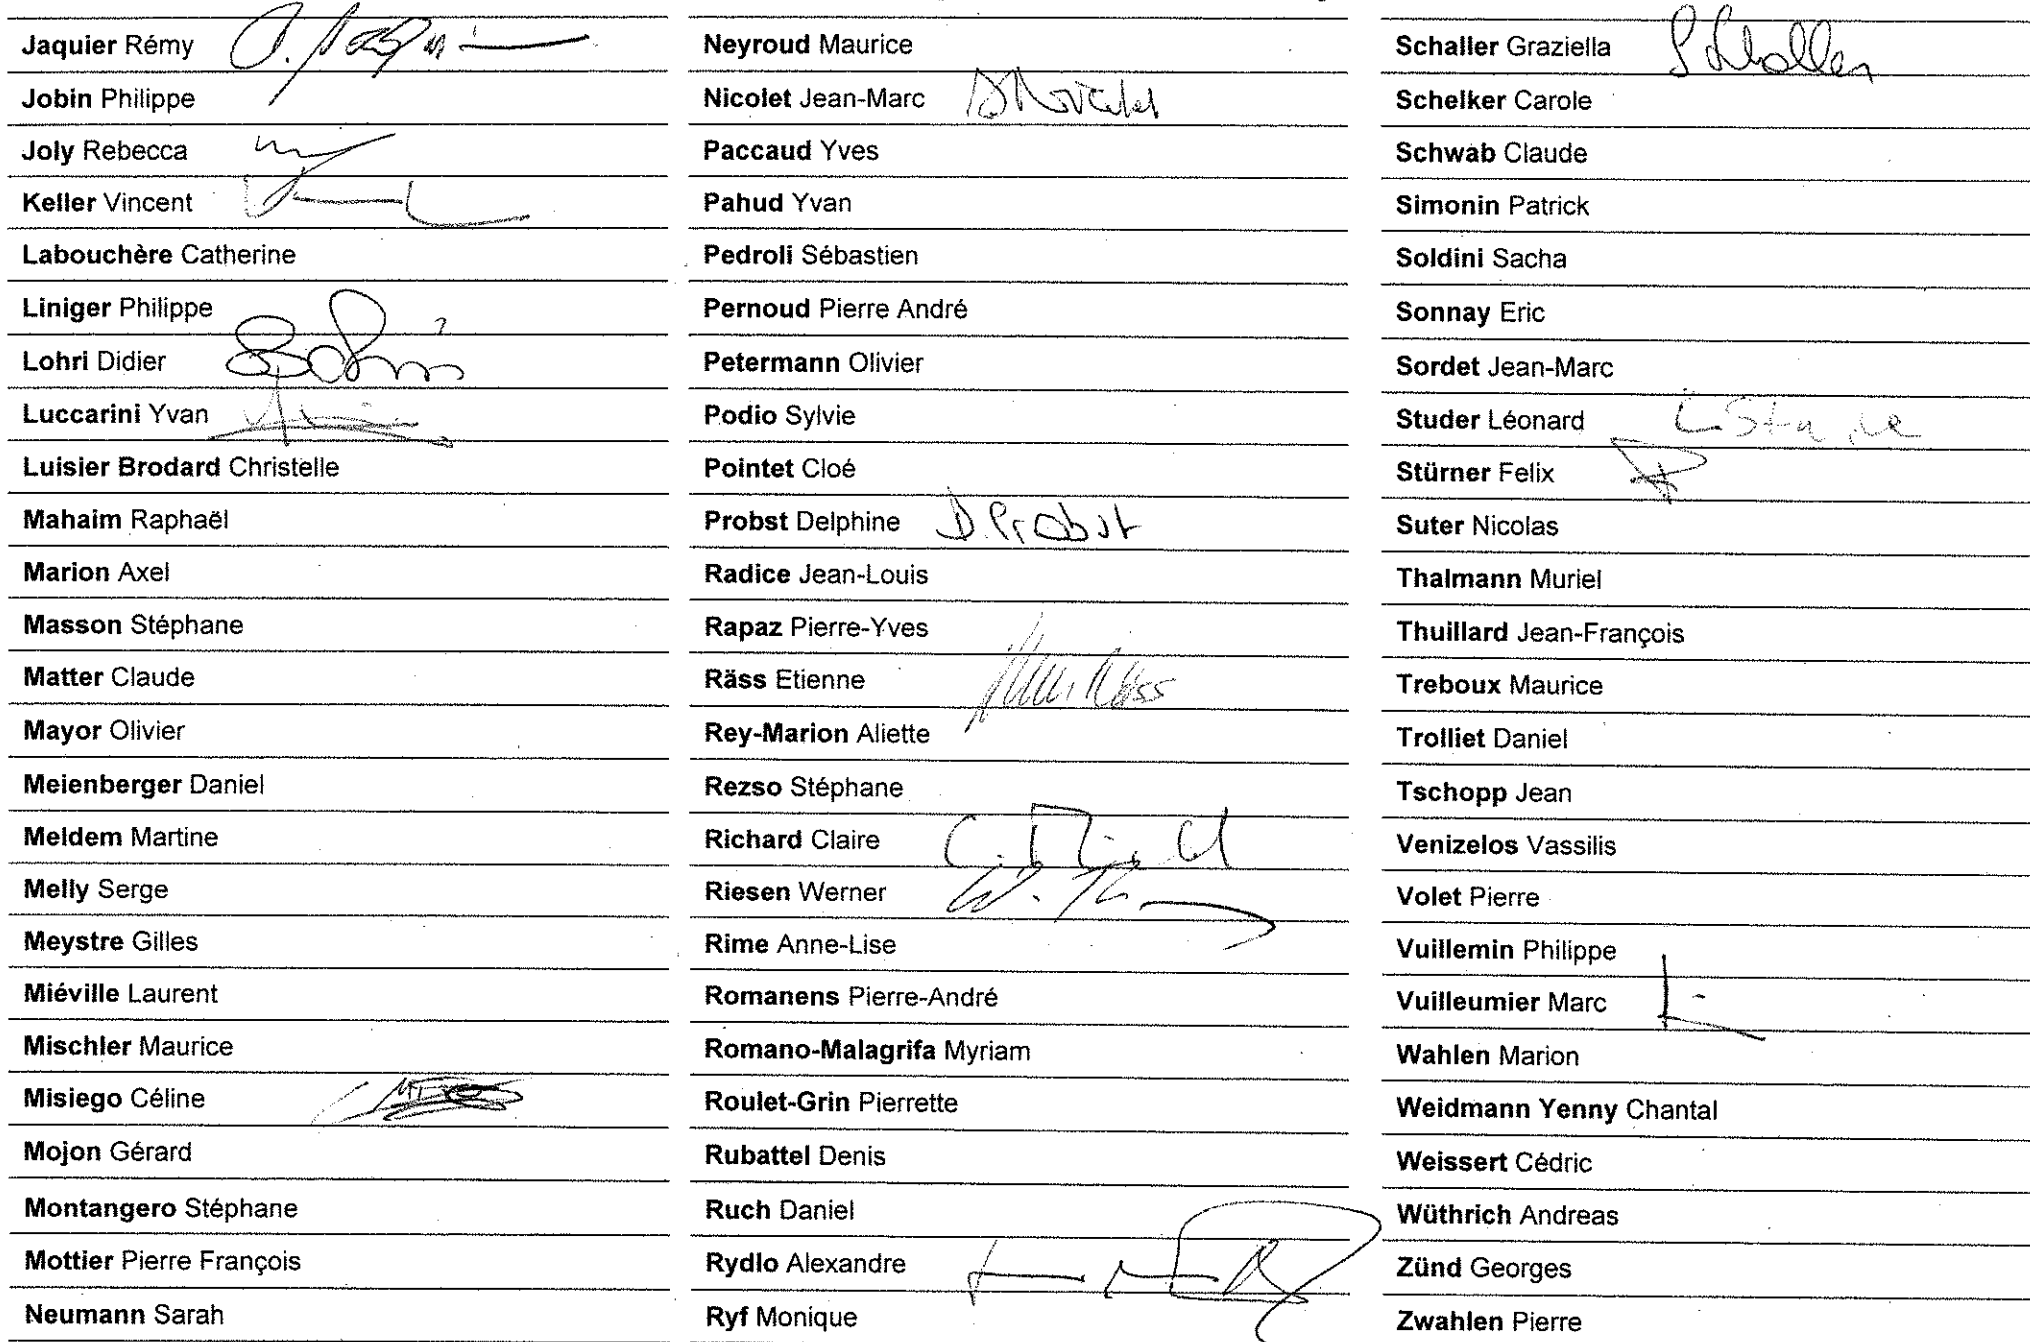 Jaquier Rémy
Jobin Philippe
Joly Rebecca
Keller Vincent
Labouchère Catherine
Liniger Philippe
Lohri Didier
Luccarini Yvan
Luisier Brodard Christelle
Mahaim Raphaël
Marion Axel
Masson Stéphane
Matter Claude
Mayor Olivier
Meienberger Daniel
Meldem Martine
Melly Serge
Meystre Gilles
Miéville Laurent
Mischler Maurice
Misiego Céline
Mojon Gérard
Montangero Stéphane
Mottier Pierre François
Neumann Sarah
Neyroud Maurice
Nicolet Jean-Marc
Paccaud Yves
Pahud Yvan
Pedroli Sébastien
Pernoud Pierre André
Petermann Olivier
Podio Sylvie
Pointet Cloé
Probst Delphine D. Probst
Radice Jean-Louis
Rapaz Pierre-Yves
Räss Etienne
Rey-Marion Aliette
Rezso Stéphane
Richard Claire
Riesen Werner
Rime Anne-Lise
Romanens Pierre-André
Romano-Malagrifa Myriam
Roulet-Grin Pierrette
Rubattel Denis
Ruch Daniel
Rydlo Alexandre
Ryf Monique
Schaller Graziella
Schelker Carole
Schwab Claude
Simonin Patrick
Soldini Sacha
Sonnay Eric
Sordet Jean-Marc
Studer Léonard
Stürner Felix
Suter Nicolas
Thalmann Muriel
Thuillard Jean-François
Treboux Maurice
Trolliet Daniel
Tschopp Jean
Venizelos Vassilis
Volet Pierre
Vuillemin Philippe
Vuilleumier Marc
Wahlen Marion
Weidmann Yenny Chantal
Weissert Cédric
Wüthrich Andreas
Zünd Georges
Zwahlen Pierre